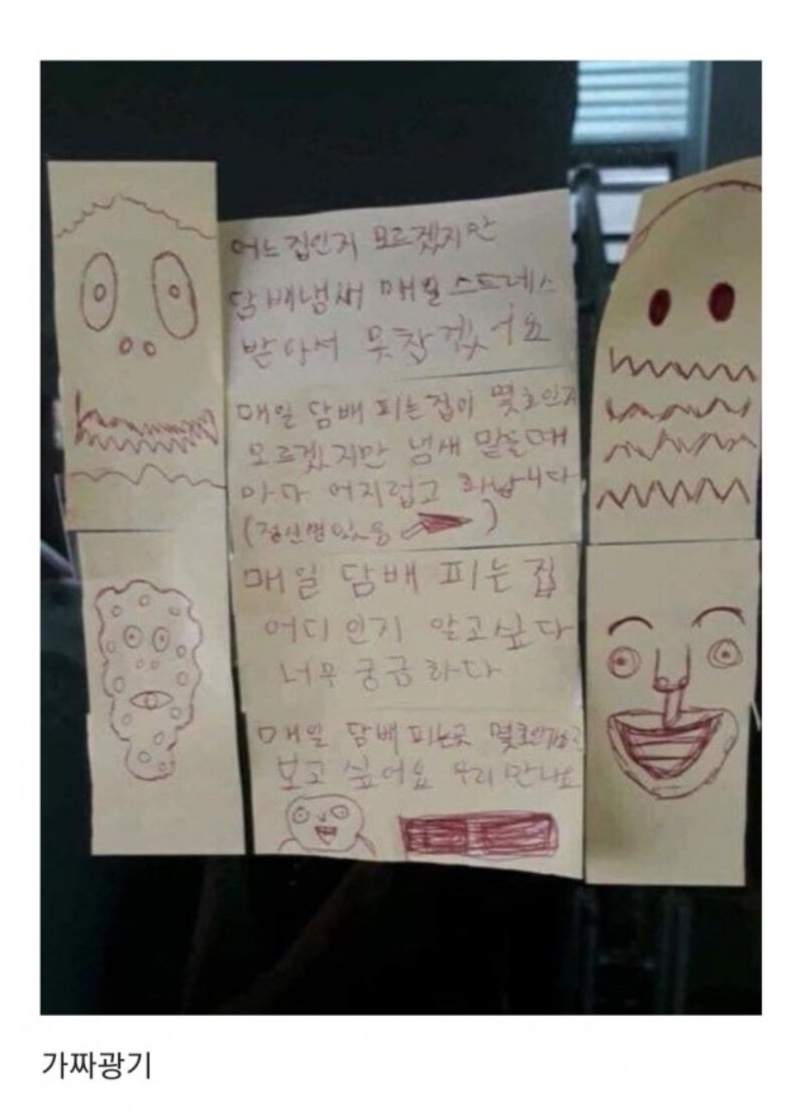 어느집인지 모르겠지만
담배냄새 매일 스트레스
받아서 못참겠어요
매일 담배 피는집이 몇호인지
모르겠지만 냄새 맡을때
마다 어지럽고 화납니다
(정신병있음 )
매일 담배 피는 집
어디인지 알고싶다
너무 궁금하다
매일 담배 피는곳 몇호인가요
보고 싶어요 우리 만나요
가짜광기